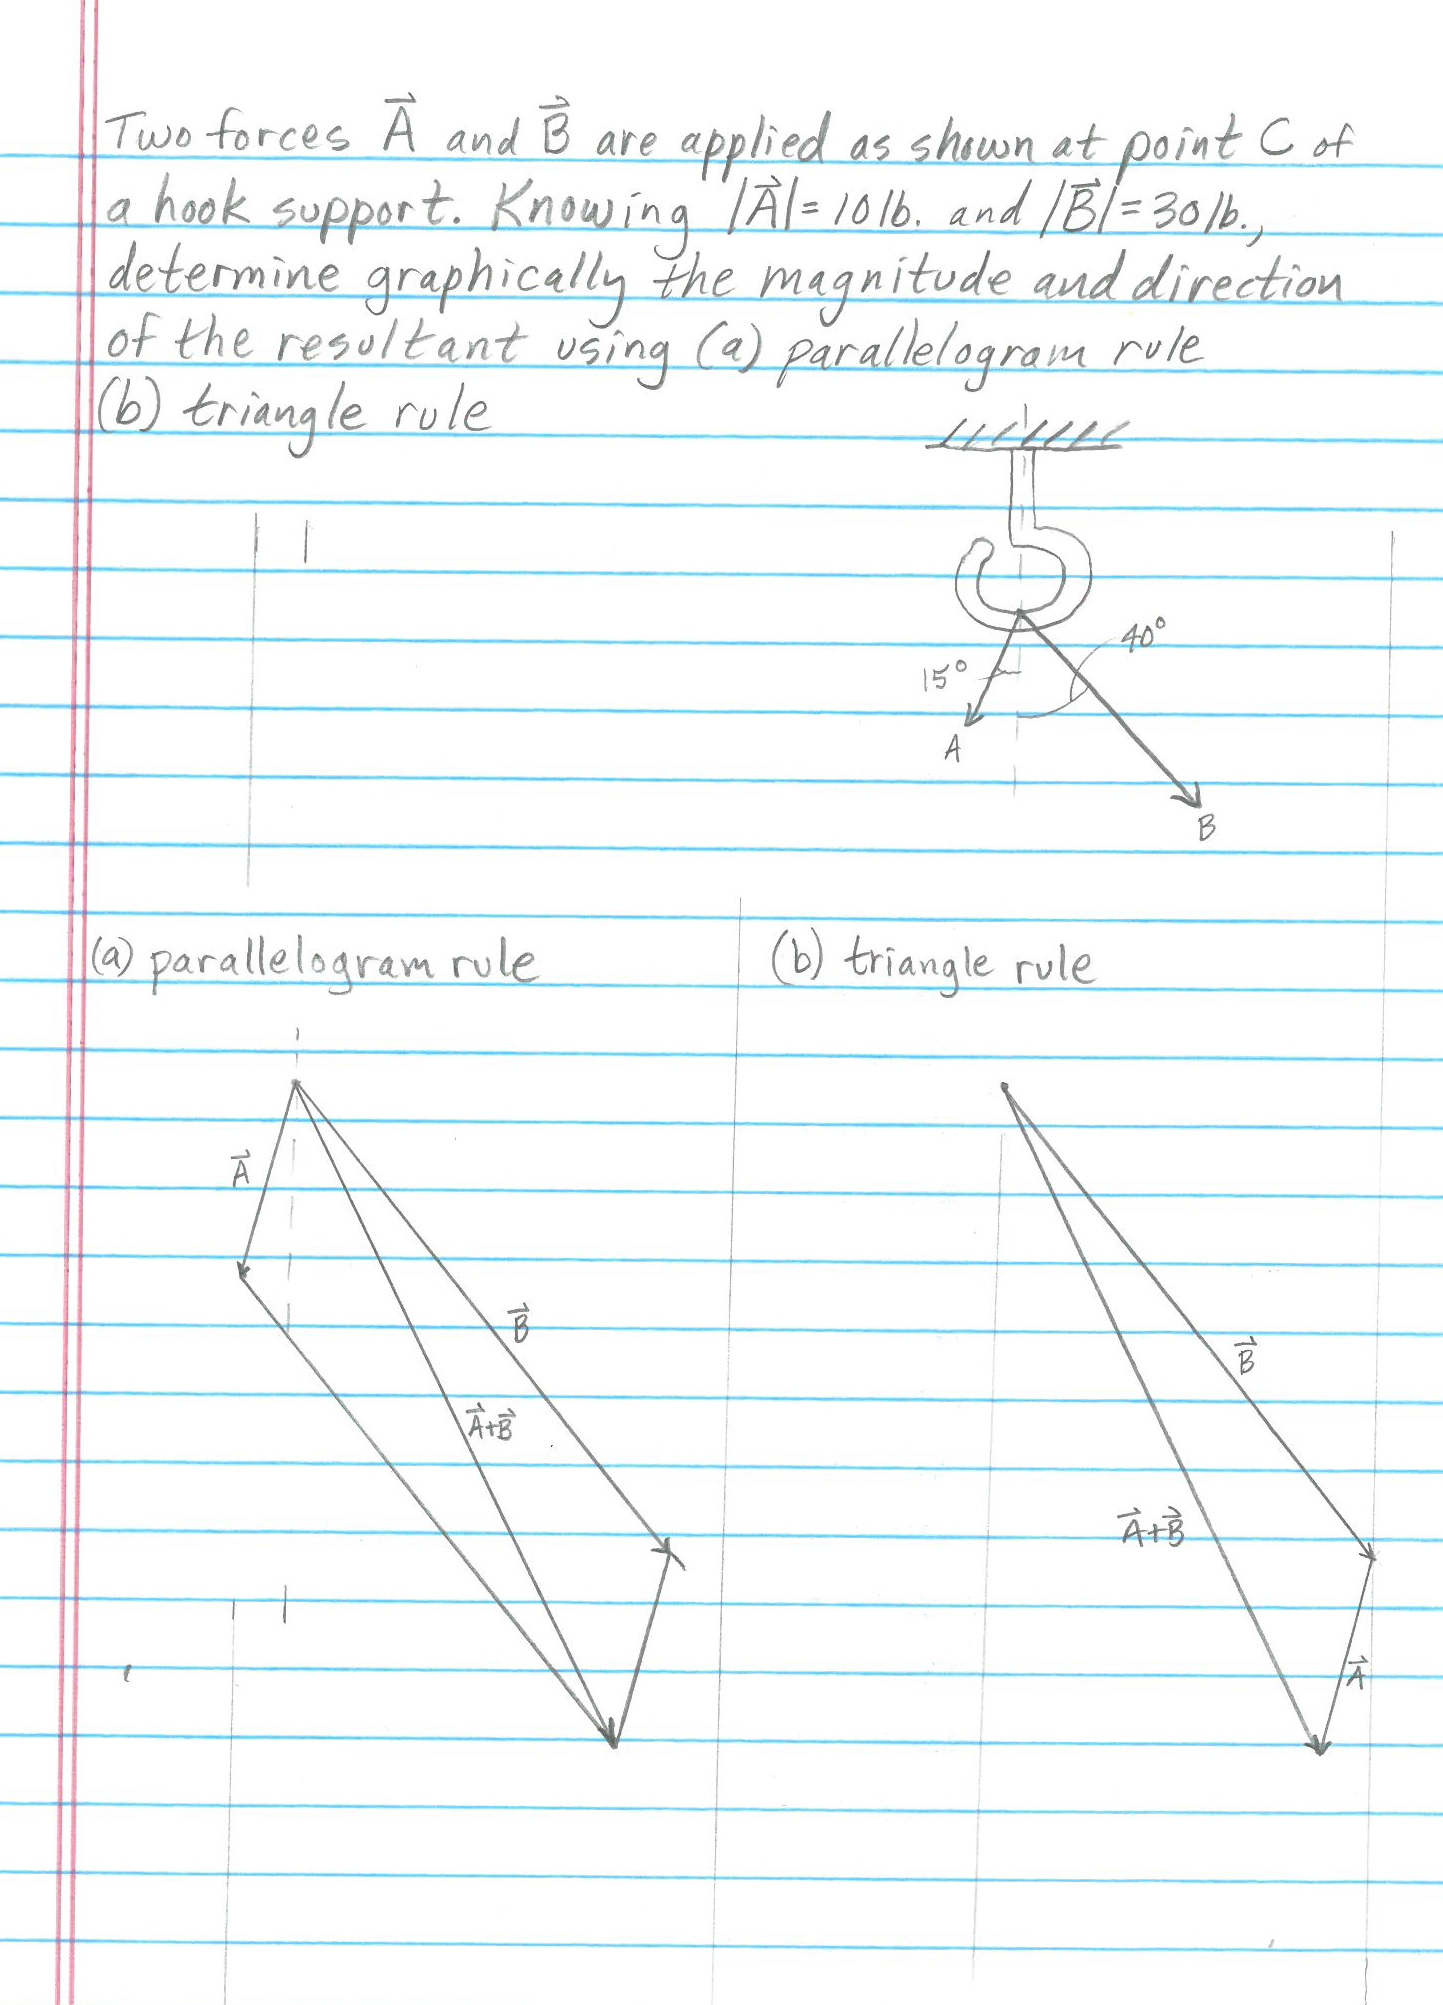 Two forces A⃗ and B⃗ are applied as shown at point C of
a hook support. Knowing |A⃗|= 10 lb. and |B⃗|= 30 lb.,
determine graphically the magnitude and direction
of the resultant using (a) parallelogram rule
(b) triangle rule
40°
15°
A
B
(a) parallelogram rule
(b) triangle rule
A⃗
B⃗
A⃗+B⃗
B⃗
A⃗+B⃗
A⃗